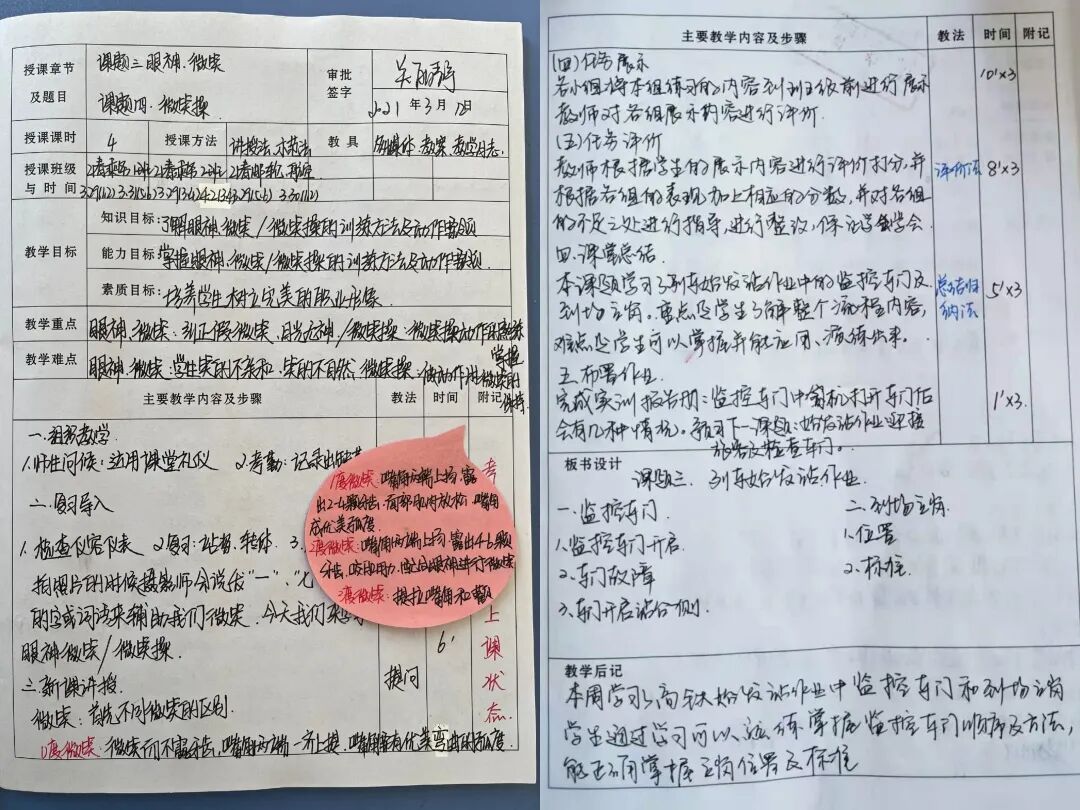 授课章节及题目
课题三 眼神、微笑
课题四、微笑操
审批签字
2021年3月1日
授课课时 4 授课方法 讲授法、示范法 教具 多媒体、教案、教学日志.
授课班级与时间
教学目标
知识目标:了解眼神、微笑/微笑操的训教方法及动作要领
能力目标:掌握眼神、微笑/微笑操的训教方法及动作要领.
素质目标:培养学生树立完美的职业形象
教学重点 眼神、微笑:纠正假微笑、目光无神/微笑操:微笑操动作用熟练掌握
教学难点 眼神、微笑:学生笑的不亲和、笑的不自然、微笑操:做动作时微笑的保持.
主要教学内容及步骤 教法 时间 附记
一.组织教学
1.师生问候:运用课堂礼仪 2.考勤:记录出缺
二.复习导入
1.检查仪容仪表 2.复习:站姿、转体 3.
拍照片的时候摄影师会说我"一"、"七
的字或词语来辅助我们微笑,今天我们来学习
眼神微笑/微笑操.
6'
三.新课讲授 提问
微笑:首先不同微笑的区别.
1度微笑:微笑而不露牙齿,嘴角两端一齐上提,嘴角有优美弯曲的弧度.
考
上
课
状
态.
1度微笑:嘴角两端上扬,露
出2-4颗牙齿,面部肌肉放松,嘴角
成优美弧度.
2度微笑:嘴角两端上扬,露出4-6颗
牙齿,
3度微笑:提拉嘴角和嘴
主要教学内容及步骤 教法 时间 附记
(四)任务展示
各小组将本组练习的内容到班级前进行展示 10'×3
教师对各组展示内容进行评价.
(五)任务评价
教师根据学生的展示内容进行评价打分,并 评价法 8'×3
根据各组的表现加上相应的分数,并对各组
的不足之处进行指导,进行整改,保证学会
四.课堂总结
本课题学习了列车始发站作业中的监控车门及 总结归纳法 5'×3
到场立岗。重点是学生了解整个流程内容,
难点是学生可以掌握并能应用、演练出来。
五.布置作业
完成实训报告册:监控车门中司机打开车门后 1'×3
会有几种情况。预习下一课题:始发站作业迎接
旅客及检查车门。
板书设计
课题三、列车始发站作业.
一.监控车门
1.监控车门开启
2.车门故障
3.车门开启站台侧.
二.到场立岗.
1.位置
2.标准.
教学后记
本周学习了高铁始发站作业中监控车门和到场立岗
学生通过学习可以熟练掌握监控车门顺序及方法,
能正确掌握立岗位置及标准